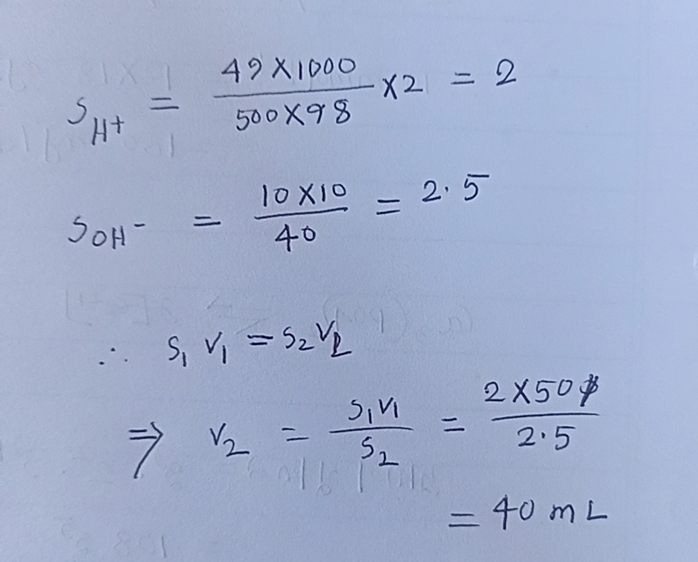 S_H+ = (49 × 1000)/(500 × 98) × 2 = 2
S_OH- = (10 × 10)/40 = 2.5
∴ S₁ V₁ = S₂ V₂
⇒ V₂ = (S₁V₁)/S₂ = (2 × 50)/2.5
= 40 mL